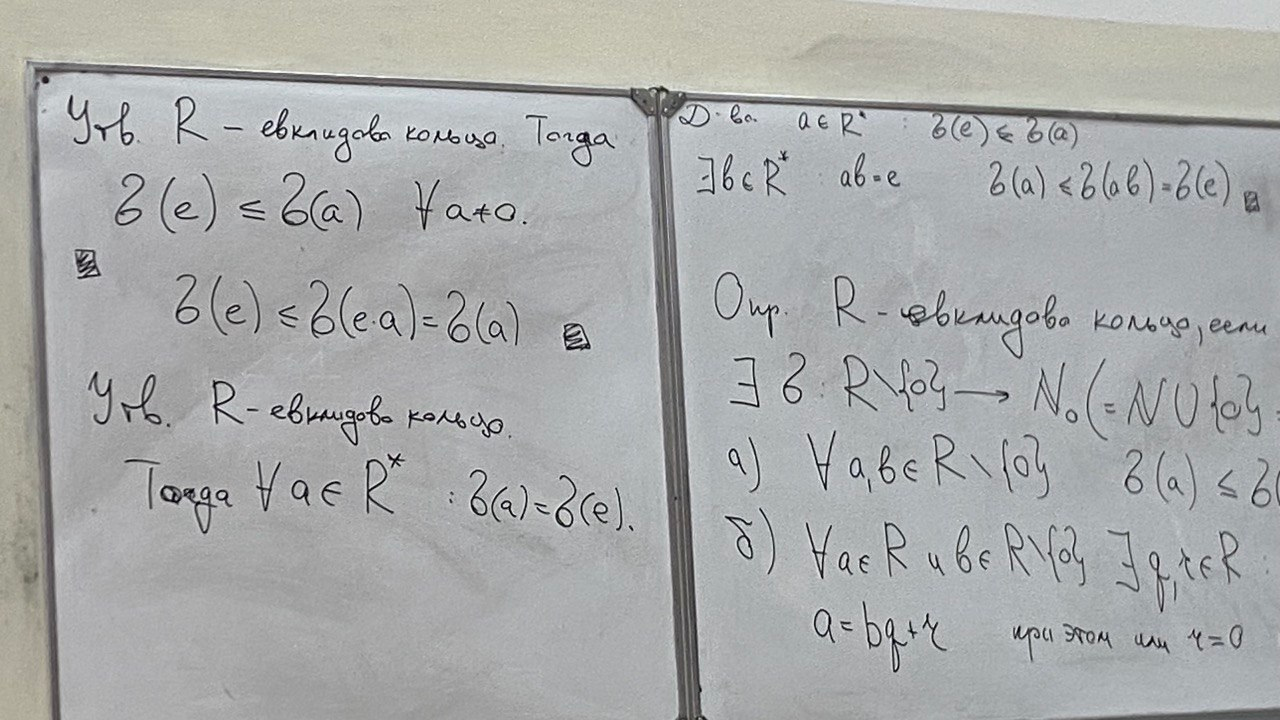 Утв. R – евклидово кольцо. Тогда
δ(e) ≤ δ(a) ∀a≠0.
δ(e) ≤ δ(e·a) = δ(a)
Утв. R - евклидово кольцо.
Тогда ∀a∈R* : δ(a)=δ(e).
Д-во. a∈R* : δ(e) ≤ δ(a)
∃b∈R* : ab=e δ(a) ≤ δ(ab)=δ(e)
Опр. R - евклидово кольцо, если
∃ δ : R\{0} → N₀(=N∪{0}
а) ∀a,b∈R\{0} δ(a) ≤ δ(
б) ∀a∈R и b∈R\{0} ∃q,r∈R :
a=bq+r при этом или r=0